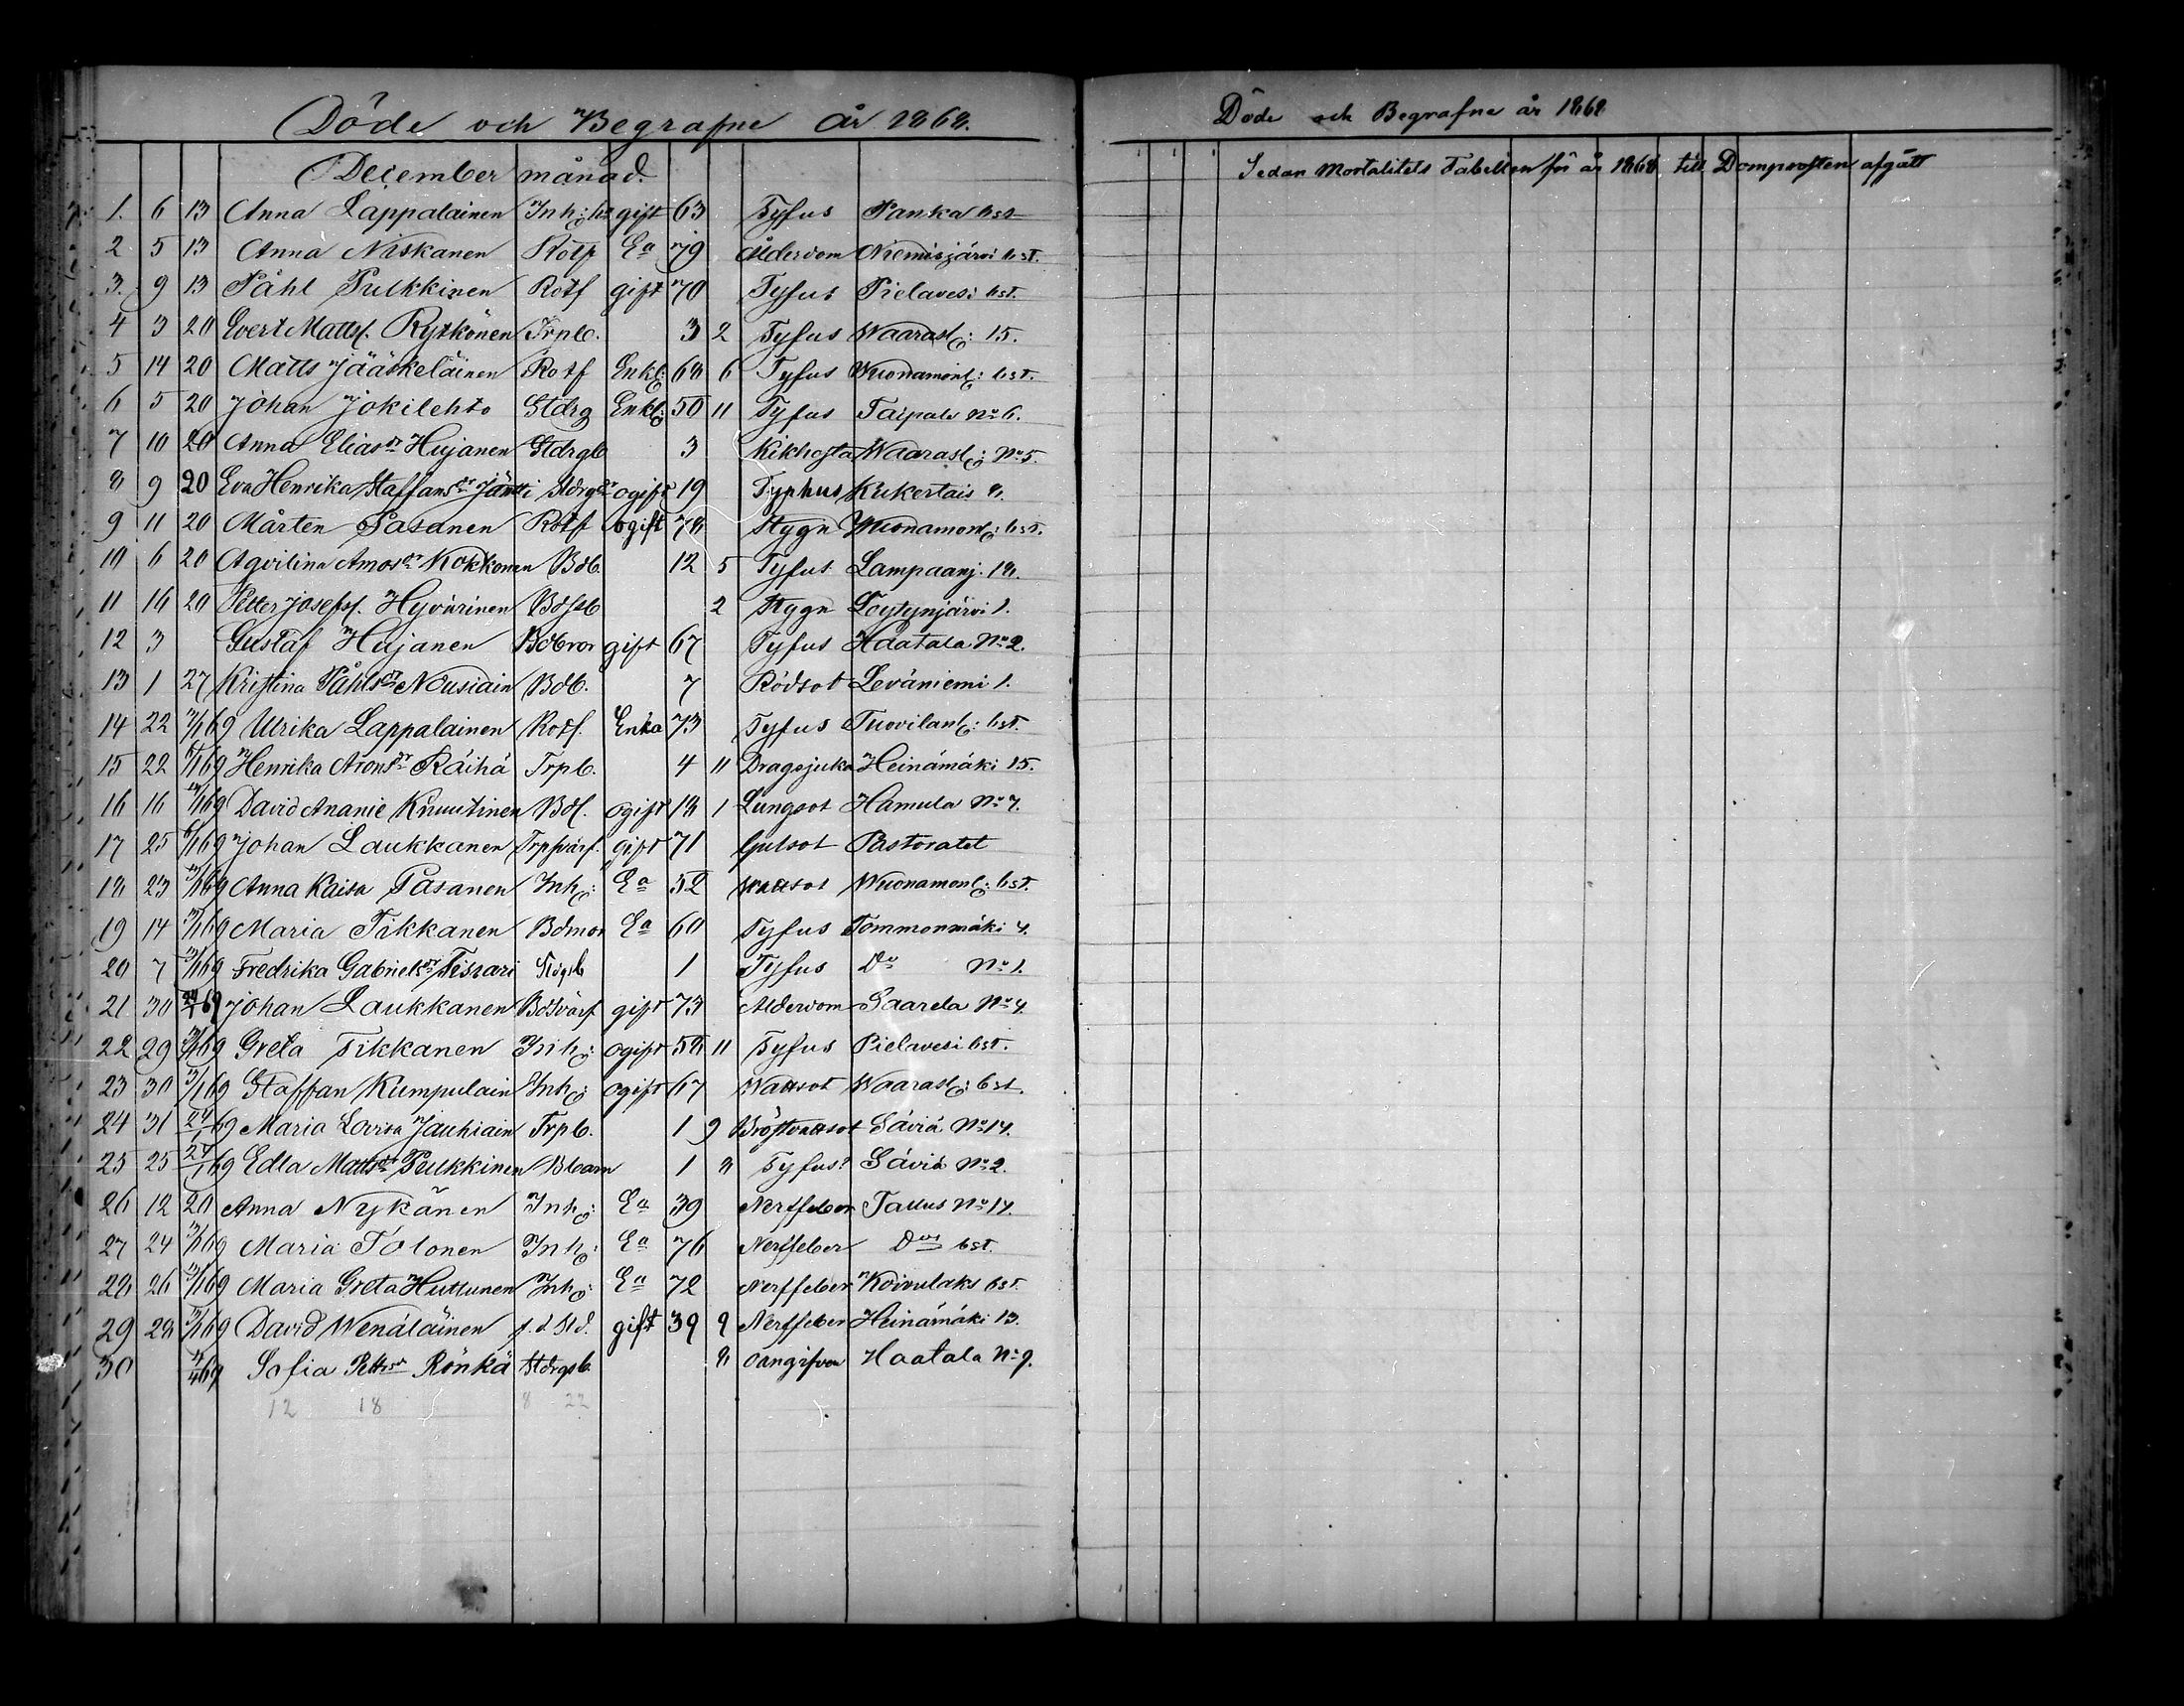 Döde och Begrafne år 1868.
December månad.
1. 6 13 Anna Lappalainen Inh: gift 63 Tyfus Panka bst
2 5 13 Anna Niskanen Rotf Ea 79 Ålderdom Niemisjärvi bst.
3. 9 13 Påhl Pulkkinen Rotf gift 70 Tyfus Pielavesi bst.
4 3 20 Evert Mattss. Rytkönen Trpb. 3 2 Tyfus Waarasl: 15.
5 14 20 Matts Jääskeläinen Rotf Enkl: 68 6 Tyfus Wuonamonl: bst.
6 5 20 Johan Jokilehto Stdrg Enkl: 50 11 Tyfus Taipale No 6.
7 10 20 Anna Eliasdr Hujanen Stdrgb 3 Kikhosta Waarasl: No 5.
8 9 20 Eva Henrika Staffansdr Jäntti Stdrgdr ogift 19 Typhus Kukertais 8.
9 11 20 Mårten Pasanen Rotf ogift 78 Stygn Wuonamonl: bst.
10 6 20 Aqvilina Amosdr Kokkonen Bdb. 12 5 Tyfus Lampaanj. 18.
11 16 20 Petter Josefss. Hyvärinen Bdssb 2 Stygn Löytynjärvi 1.
12 3 Gustaf Hujanen Bdbror gift 67 Tyfus Haatala No 2.
13 1 27 Kristina Påhlsdr Nousiain Bdb. 7 Rödsot Leväniemi 1.
14 22 Ulrika Lappalainen Rotf. Enka 73 Tyfus Tuovilanl: bst.
15 22 6/1 69 Henrika Aronsdr Räihä Trpb. 4 11 Dragsjuka Heinämäki 15.
16 16 David Ananie Knuutinen Bds. ogift 18 1 Lungsot Hamula No 7.
17 25 6/1 69 Johan Laukkanen Trpsvärf. gift 71 Gulsot Pastoratet
18 23 Anna Kaisa Pasanen Inh: Ea 52 Wattsot Wuonamonl: bst.
19 14 Maria Tikkanen Bdmor Ea 60 Tyfus Tommonmäki 4.
20 7 Fredrika Gabrielsdr Tissari 1 Tyfus Do No 1.
21 30 24/1 69 Johan Laukkanen Bdsvärf gift 73 Ålderdom Saarela No 4.
22 29 Greta Tikkanen Inh: ogift 58 11 Tyfus Pielavesi bst.
23 30 31/1 69 Staffan Kumpulain Inh: ogift 67 Wattsot Waarasl: bst.
24 31 24/1 69 Maria Lovisa Jauhiain Trpb. 1 9 Bröstvattsot Säviä No 14.
25 25 24/1 69 Edla Mattsdr Pulkkinen Bbarn 1 8 Tyfus Säviä No 2.
26 12 20 Anna Nykänen Inh: Ea 39 Nerffeber Tallus No 14.
27 24 31/1 69 Maria Tolonen Inh: Ea 76 Nerffeber Dos bst.
28 26 Maria Greta Huttunen Inh: Ea 72 Nerffeber Koivulaks bst.
29 28 31/1 69 David Wenäläinen f. d. Sld. gift 39 9 Nerffeber Heinämäki 13.
30 Sofia Pettersdr Rönkä Stdrgsb. 8 oangifven Haatala No 9.
12 18 8 22
Döde och Begrafne år 1868
Sedan Mortalitets Tabellen för år 1868 till Domprosten afgått